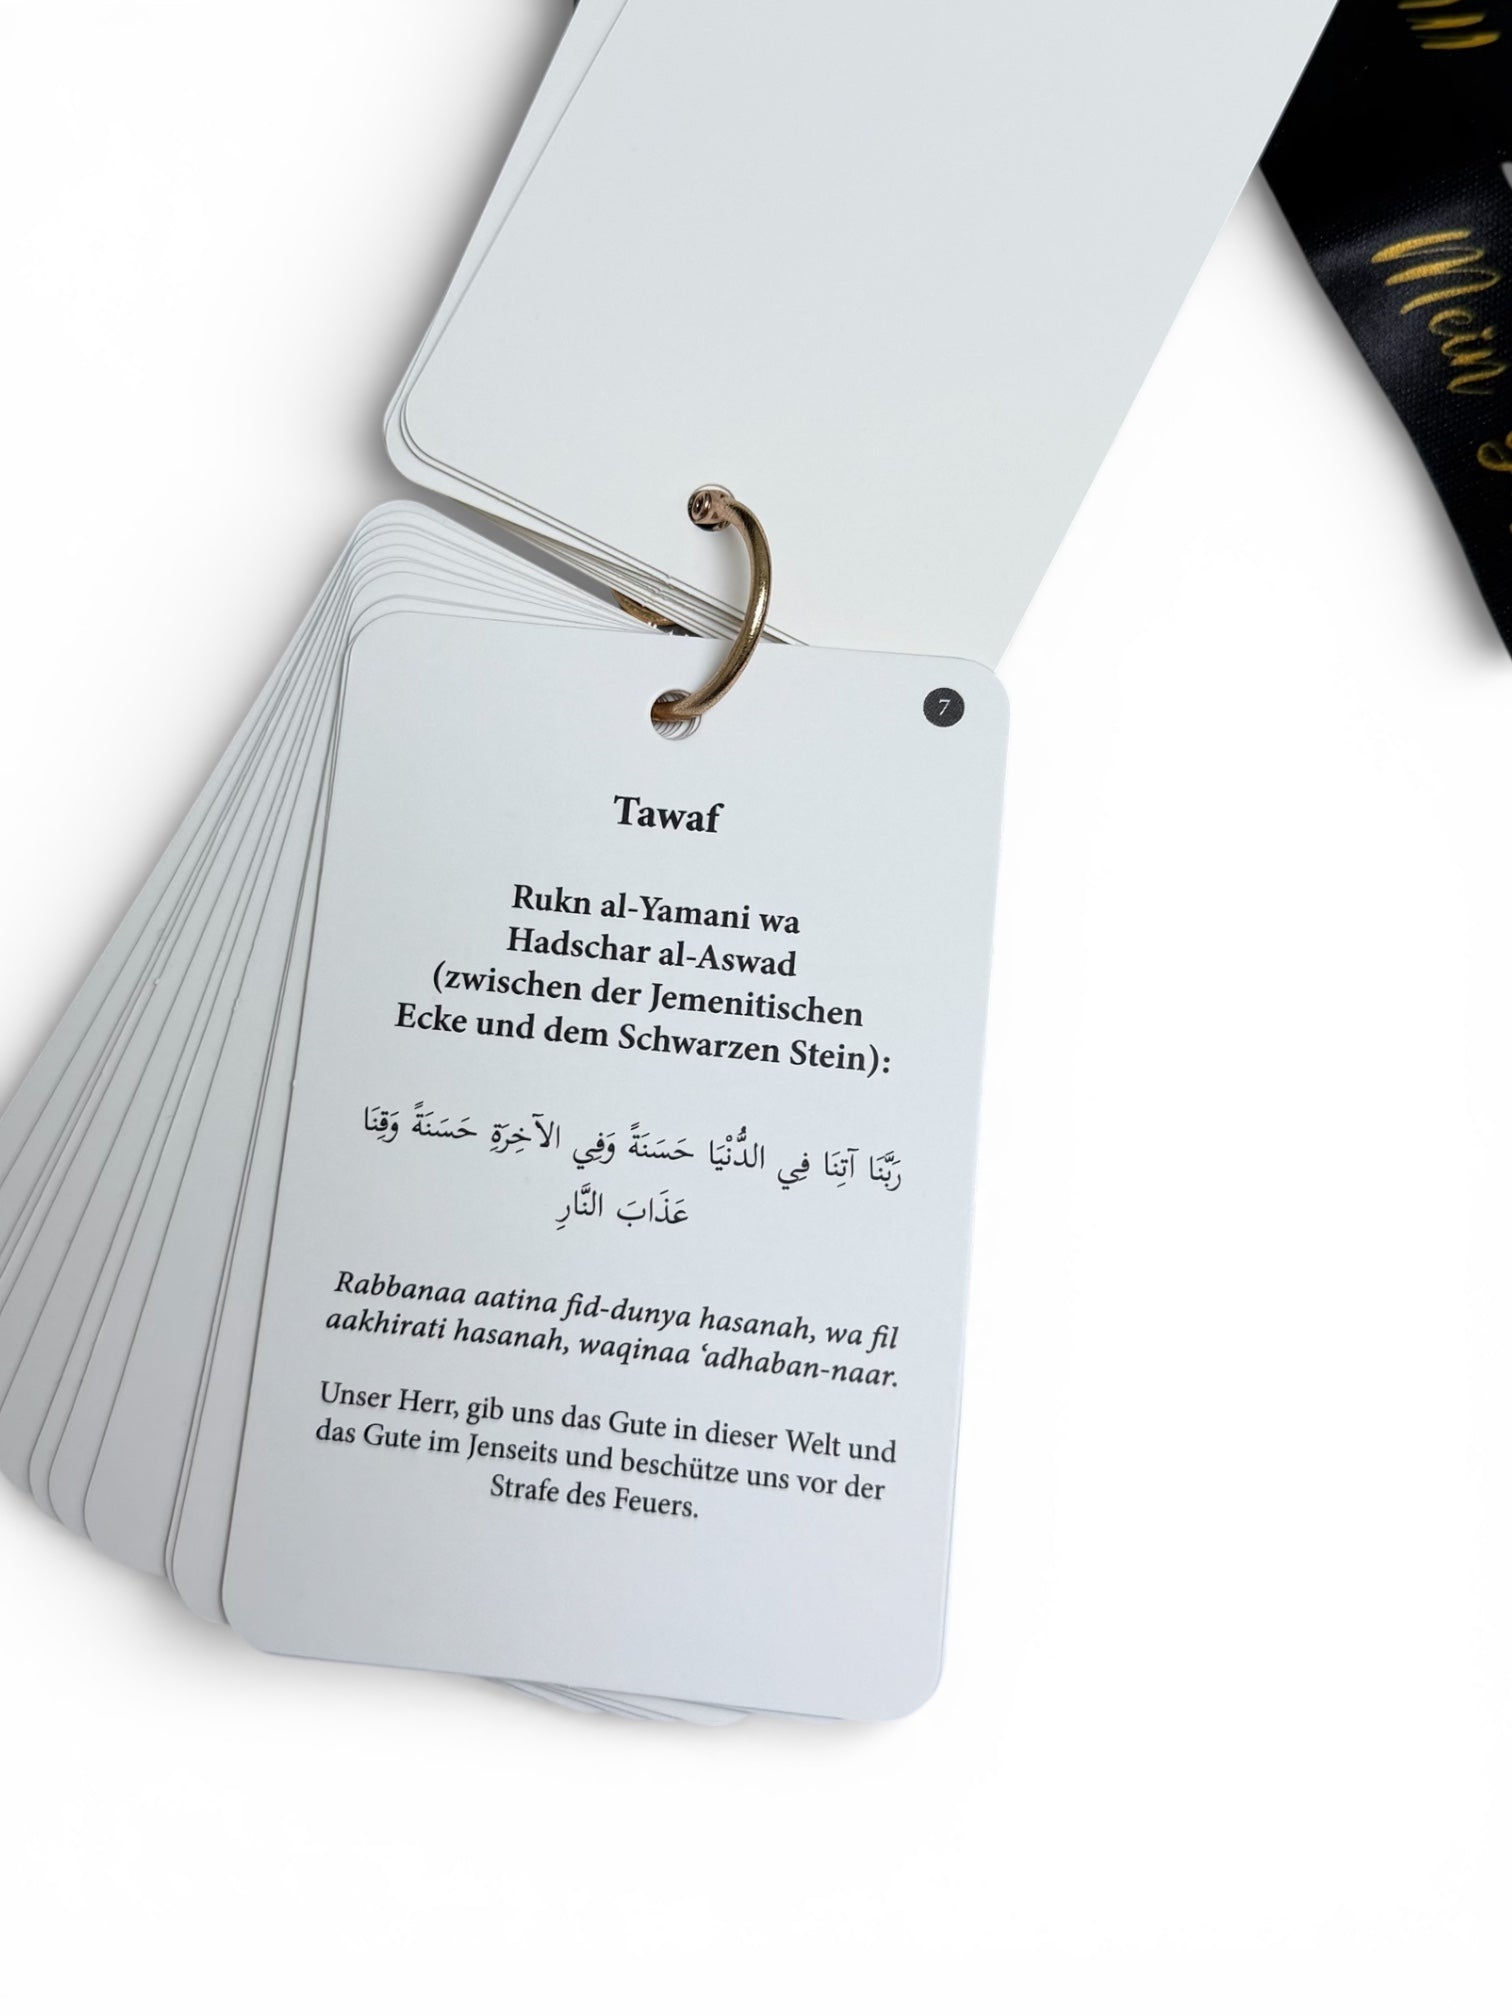 Mein
7
Tawaf
Rukn al-Yamani wa
Hadschar al-Aswad
(zwischen der Jemenitischen
Ecke und dem Schwarzen Stein):
رَبَّنَا آتِنَا فِي الدُّنْيَا حَسَنَةً وَفِي الآخِرَةِ حَسَنَةً وَقِنَا
عَذَابَ النَّارِ
Rabbanaa aatina fid-dunya hasanah, wa fil
aakhirati hasanah, waqinaa ‘adhaban-naar.
Unser Herr, gib uns das Gute in dieser Welt und
das Gute im Jenseits und beschütze uns vor der
Strafe des Feuers.